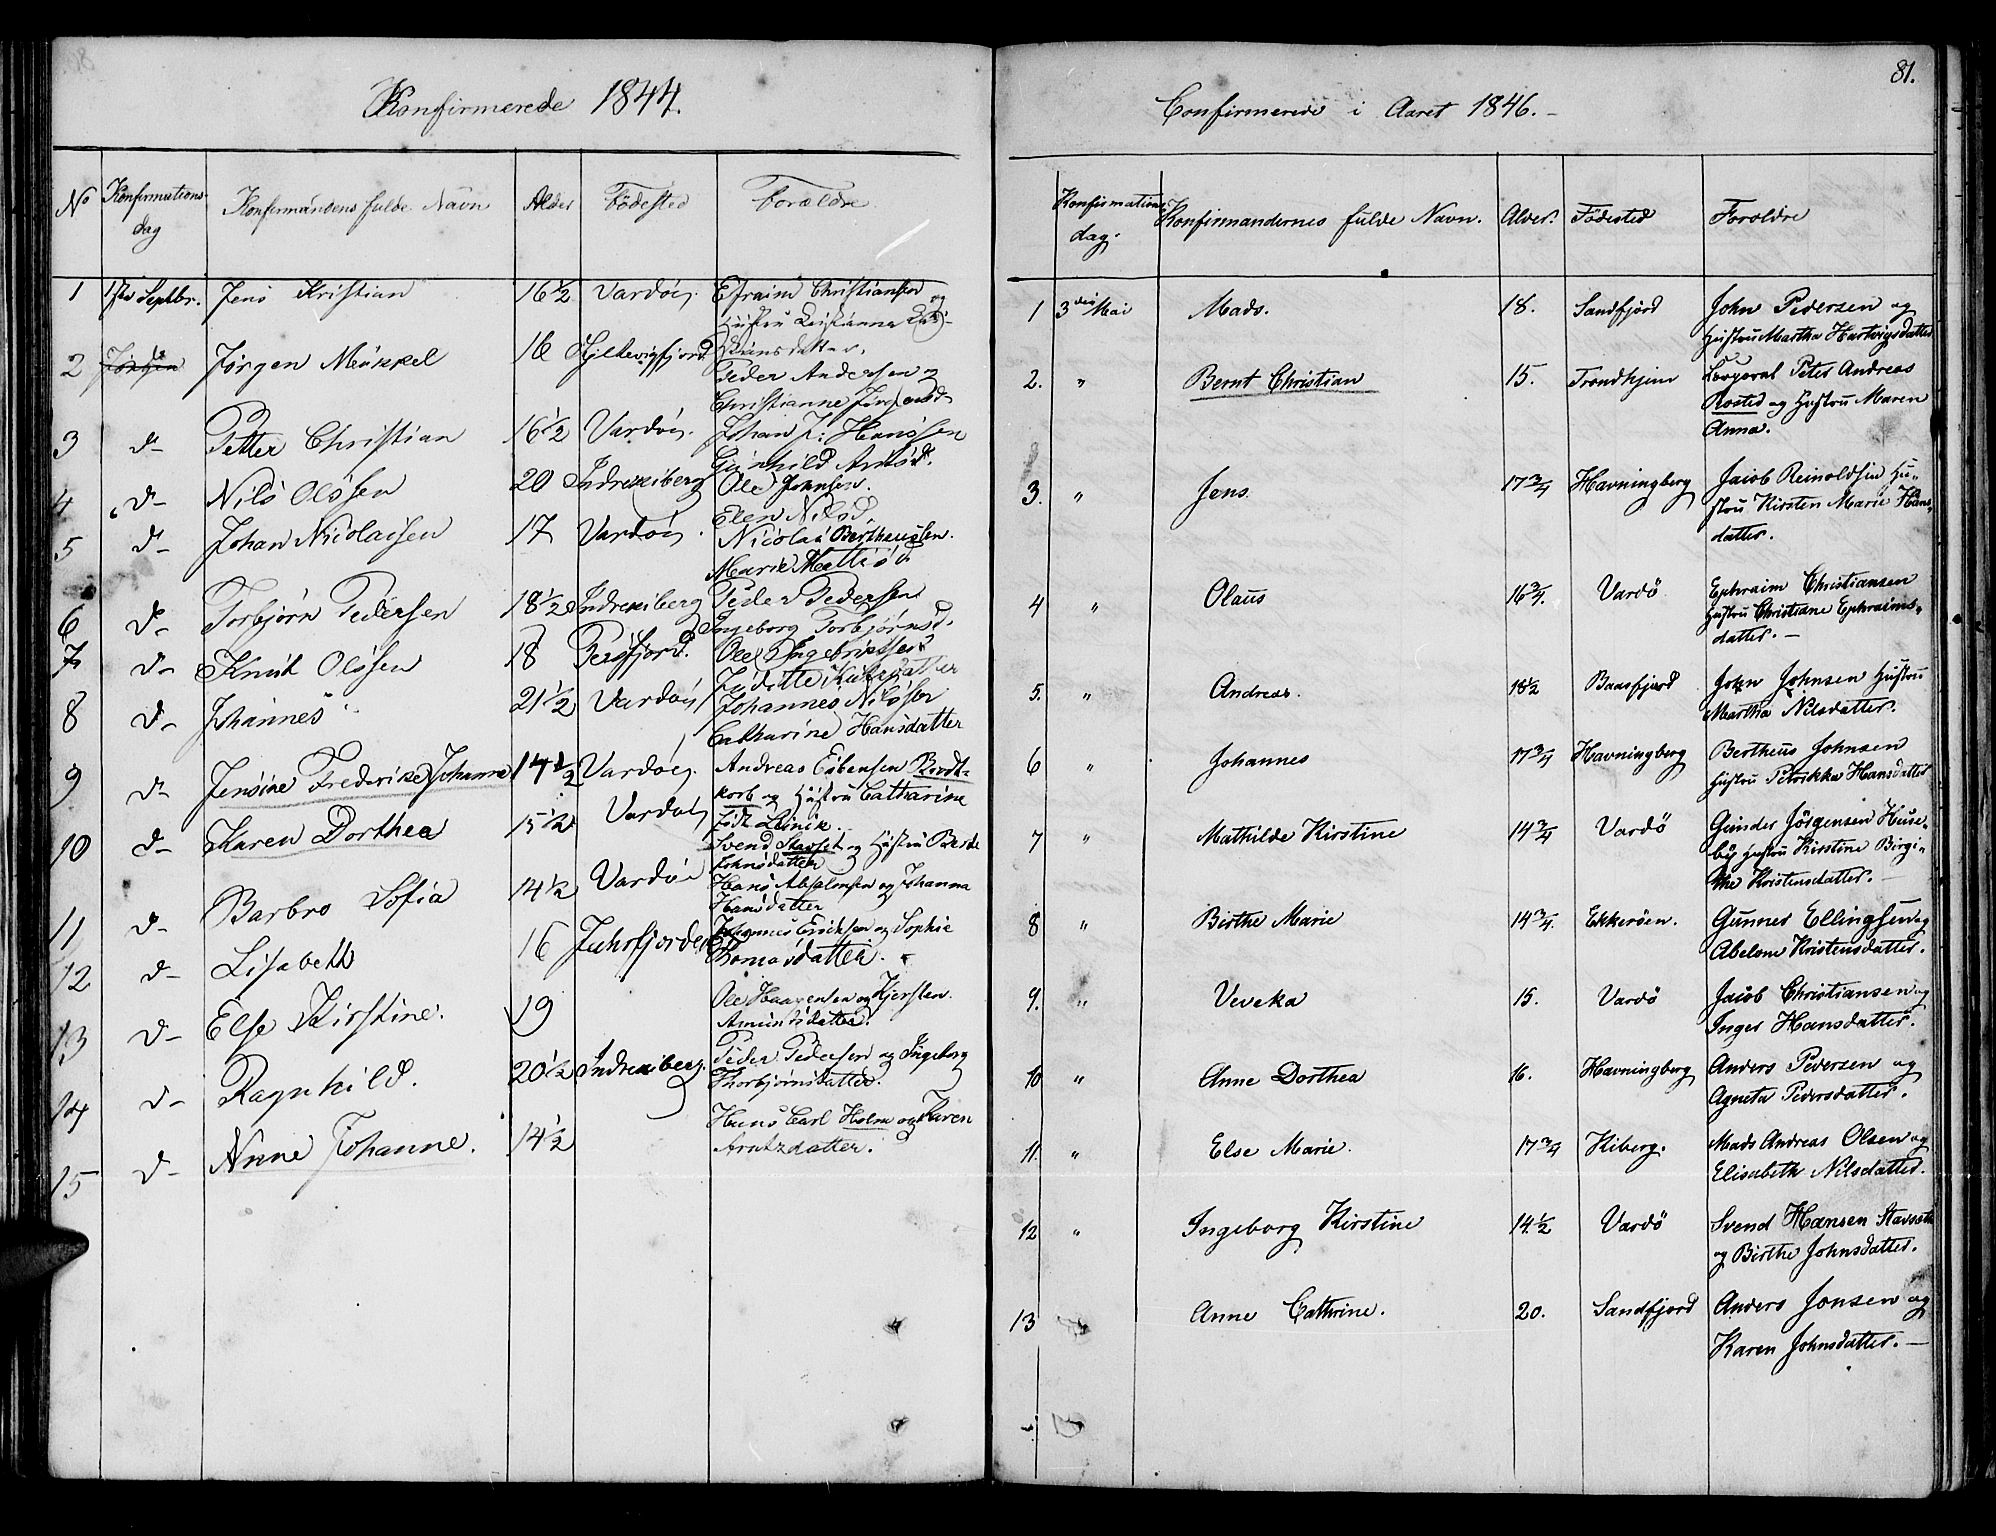 Konfirmerede 1844.
No Konfirmations dag Konfirmandens fulde Navn Alder Födested Forældre
1 1ste Septbr. Jens Kristian 16½ Vardöe. Efraim Christiansen og
Hustru
2 Jørgen Mikkel 16
Peder Andersen og
Christianne
3 d- Petter Christian 16½ Vardöe. Johan J: Hanssen
4 d- Nils Olssen 20 Indrekiberg Ole Johnsen.
Elen Nilsd.
5 d- Johan Nicolaisen 17 Vardöe. Nicolai Bertheussen.
Marie
6 d- Torbjörn Pedersen 18½ Indrekiberg Peder Pedersen
Ingeborg Torbjörnsd.
7 d- Knut Olssen 18 Persfjord. Ole
8 d- Johannes 21½ Vardöe Johannes Nilssen
Catharine Hansdatter
9 d- Jensine Frederike Johanne 14½ Vardöe. Andreas Esbensen Brodt-
korb og Hustru Catharine
födt
10 d- Karen Dorthea 15½ Vardöe
Svend Stavset og Hustru Berte
Johnsdatter
11 d- Barbro Sofia 14½ Vardöe Hans Absalonsen og Johanna
Hansdatter
12 d- Lisabeth 16 Johannes Erichsen og Sophie
Tomasdatter.
13 d- Else Kirstine. 19 Ole Haavensen og Kjersten
Amundsdatter.
14 d- Ragnhild. 20½ Indrekiberg. Peder Pedersen og Ingeborg
Thorbjörnsdatter.
15 d- Anne Johanne. 14½ Hans Carl Holm og Karen
Arntzdatter.
81.
Confirmerede i Aaret 1846.-
Konfirmations dag. Konfirmandernes fulde Navn. Alder. Födested Foroldre
1 3die Mai Mads. 18. Sandfjord John Pedersen og
Hustru Martha Hartvigsdatter
2. " Bernt Christian 15. Trondhjem Corporal Peter Andreas
Rosted og Hustru Maren
Anna.
3. " Jens. 17¾ Havningberg Jacob Reinoldsen Hu-
stru Kirsten Marie Hans-
datter.
4 " Olaus 16¾. Vardö Ephraim Christiansen
Hustru Christiane Ephraims-
datter. -
5. " Andreas. 18½ Baasfjord John Johnsen Hustru
Martha Nilsdatter.
6 " Johannes 17¾ Havningberg Bertheus Johnsen
Hustru Petrikka Hansdatter
7 " Mathilde Kirstine 14¾ Vardö Gunder Jörgensen Huse-
by Hustru Kirstine Birgi-
the Kristensdatter. -
8 " Birthe Marie 14¾. Ekkeröen. Gunner Ellingsen og
Abelone Kristensdatter.
9. " Veveka 15. Vardö Jacob Christiansen og
Inger Hansdatter.
10 " Anne Dorthea 16. Havningberg Anders Pedersen og
Agneta Pedersdatter.
11 " Else Marie. 17¾ Kiberg. Mads Andreas Olsen og
Elisabeth Nilsdatter.
12 " Ingeborg Kirstine 14½ Vardö Svend Hansen Stavseth
og Birthe Johnsdatter.
13 " Anne Cathrine. 20. Sandfjord Anders Jonsen og
Karen Johnsdatter. -